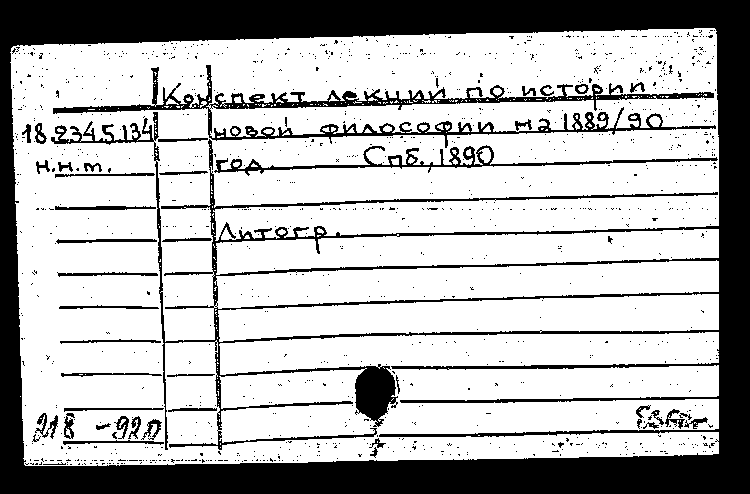 Конспект лекций по истории
18.234.5.134 новой философии на 1889/90
н.н.т. год. Спб., 1890
Литогр.
218 -92д